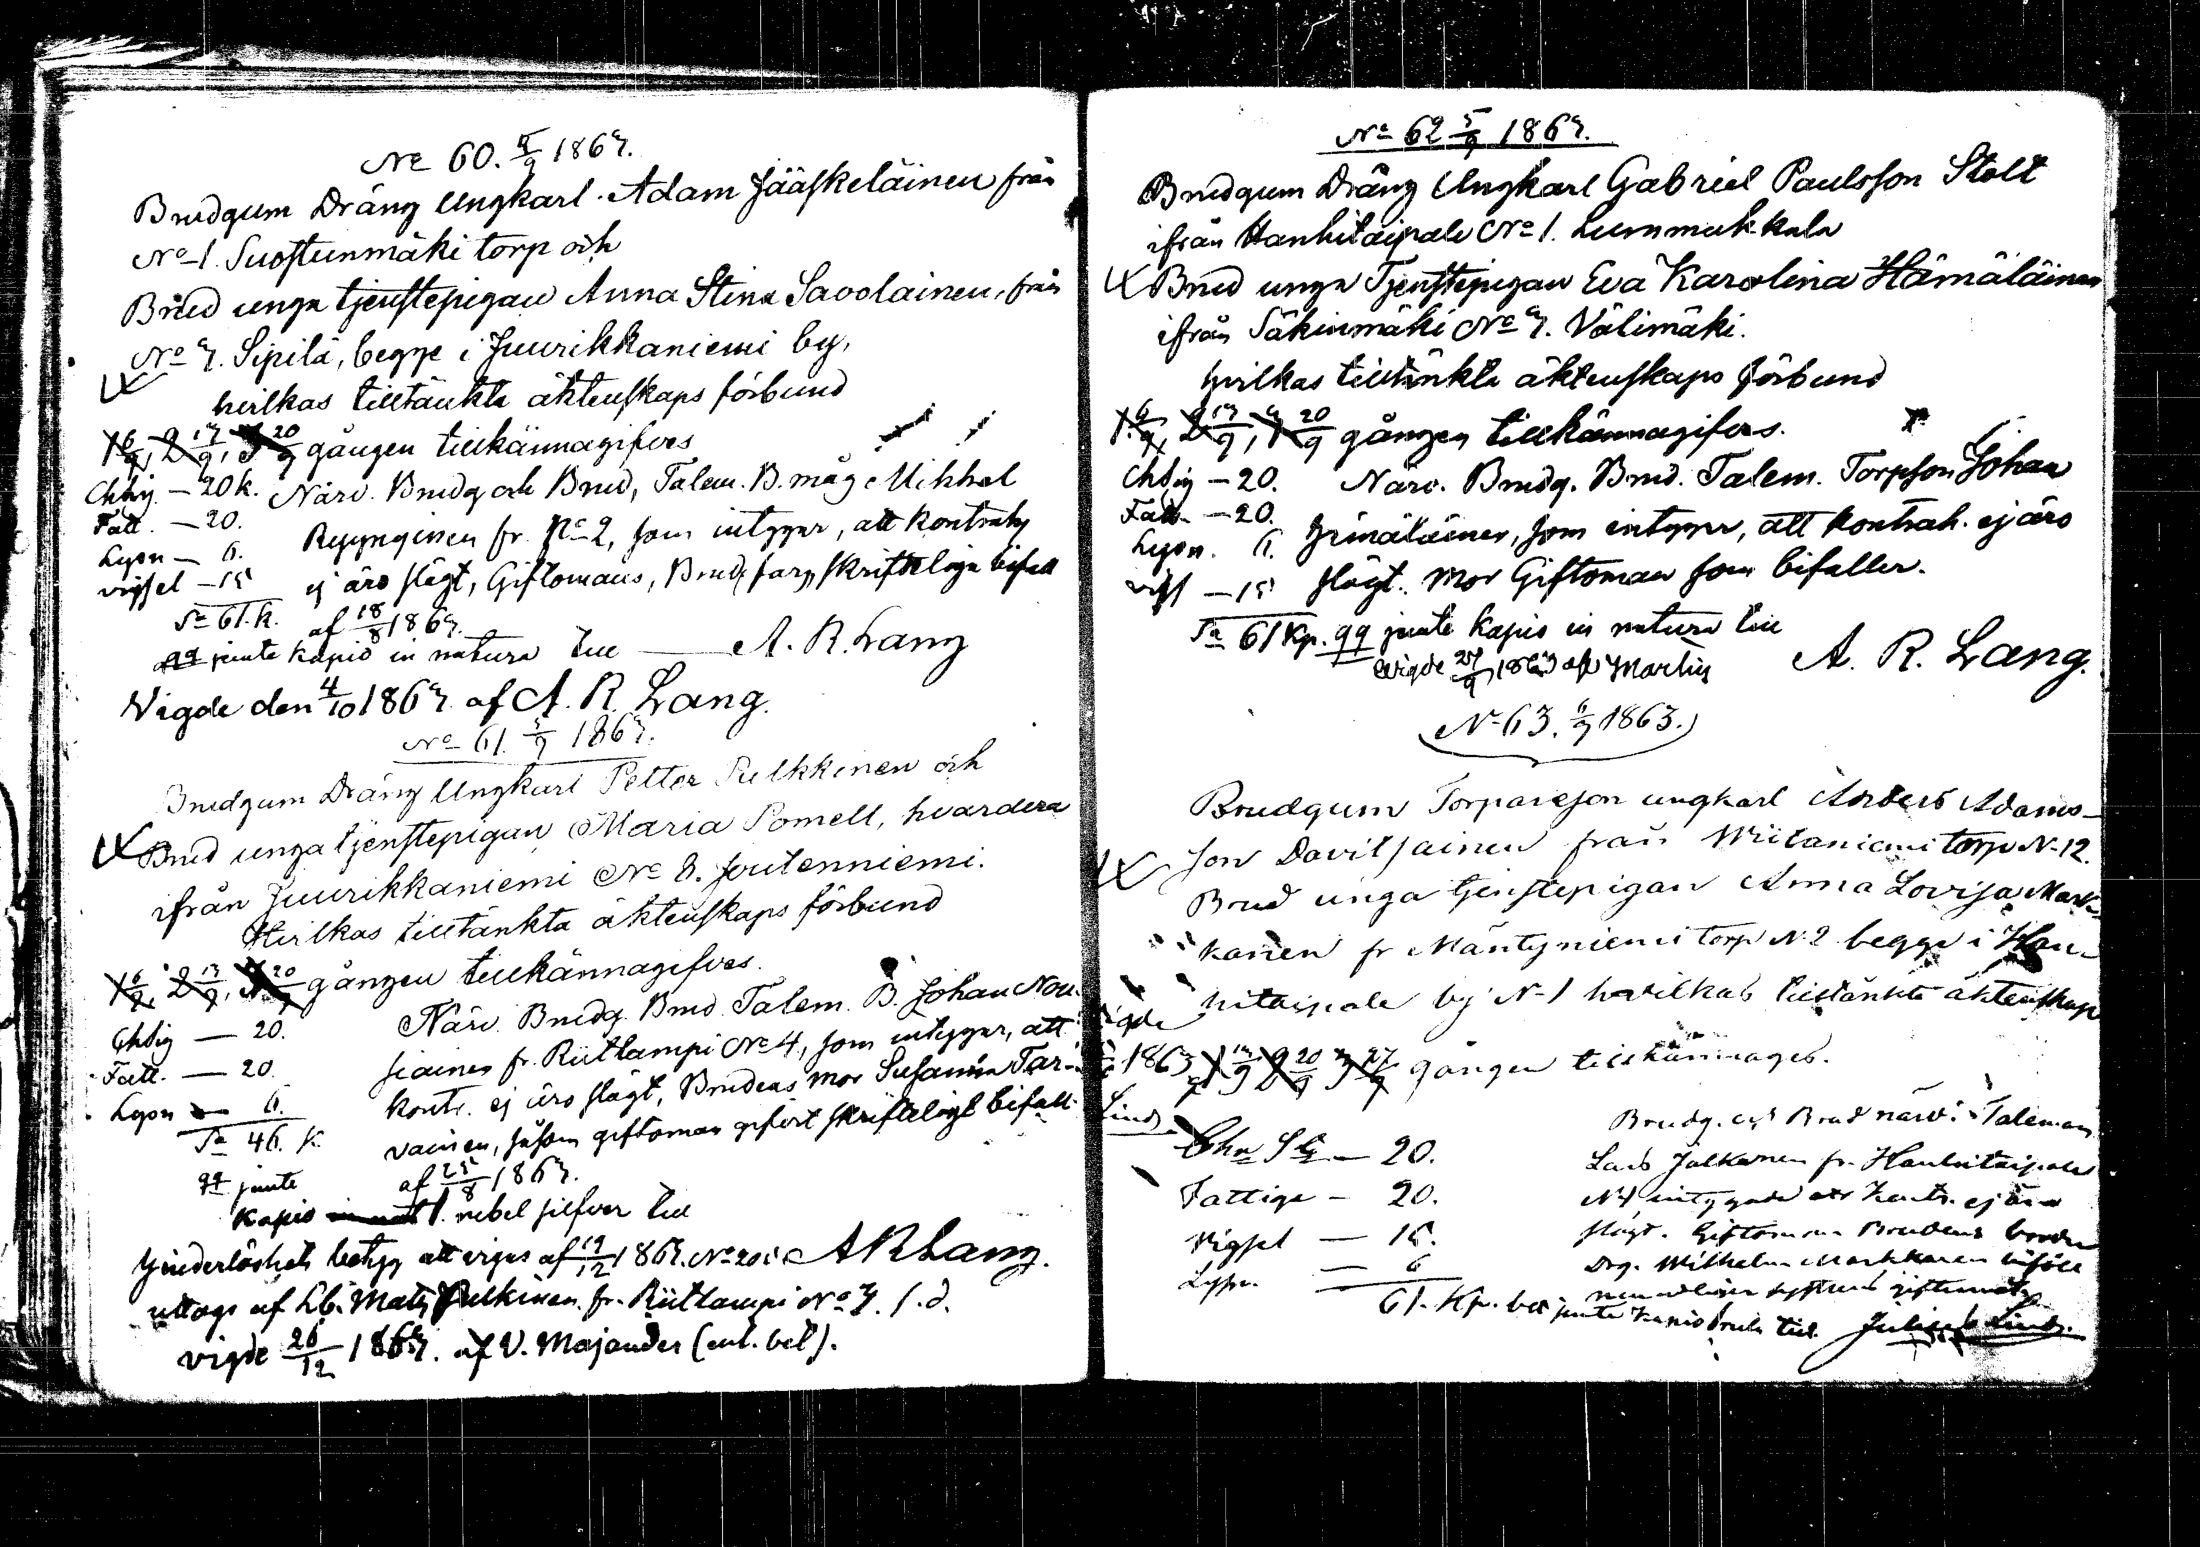 No 60. 5/9 1863.
Brudgum Dräng Ungkarl Adam Jääskeläinen från
No 1. Suostunmäki torp och
Brud unga tjenstepigan Anna Stina Savolainen, från
No 3. Sipilä, begge i Juurikkaniemi by,
hvilkas tilltänkta äktenskaps förbund
1 6/9, 2 13/9, 3 20/9 gången tillkännagifves
Chsig — 20 k. Närv. Brudg. och Brud, Talem. B. måg Mikkel
Fatt. — 20. fr. No 2, som intygar, att kontrah.
Lysn — 6. ej äro slägt, Giftomans, Brud. fars skriftliga bifall
vigsel — 15
Sa 61. k. af 18/8 1863.
qq junte kapio in natura till — A. R. Lang
Vigde den 4/10 1863 af A. R. Lang.
No 61. 5/9 1863.
Brudgum Dräng Ungkarl Petter Pulkkinen och
Brud unga tjenstepigan Maria Pomell, hvardera
ifrån Juurikkaniemi No 8. Joutenniemi.
Hvilkas tilltänkta äktenskaps förbund
1 6/9, 2 13/9, 3 20/9 gången tillkännagifves.
Chsig — 20. Närv. Brudg. Brud. Talem. B. Johan Nou-
Fatt. — 20. siainen fr. Riitlampi No 4, som intygar, att
Lysn — 6. kontr. ej äro slägt, Brudens mor Susanna Tar-
Sa 46. k. vainen, såsom giftoman gifvit skriftligt bifall
qq junte af 25/8 1863.
kapio in nat 1. rubel silfver till
hinderlöshets betyg att vigas af 19/12 1863. No 201 A R Lang.
uttogs af Lb. Mats Pulkinen fr. Riitlampi No 3. s. d.
vigde 26/12 1863. af V. Majander (enl. bet).
No 62 5/9 1863.
Brudgum Dräng Ungkarl Gabriel Paulsson Stolt
ifrån Hanhitaipale No 1. Lummukkala
Brud unga Tjenstepigan Eva Karolina Hämäläinen
ifrån Säkinmäki No 3. Välimäki.
hvilkas tilltänkta äktenskaps förbund
1 6/9, 2 13/9, 3 20/9 gången tillkännagifves.
Chsig — 20. Närv. Brudg. Brud. Talem. Torpson Johan
Fatt. — 20.
Lysn. 6. Hämäläinen, som intygar, att kontrah. ej äro
vigs — 15 slägt. Mor Giftoman som bifaller.
Sa 61 Kp. qq junte kapio in natura till
vigde 27/9 1863 af Martin A. R. Lang.
No 63. 6/9 1863.
Brudgum Torpareson ungkarl Anders Adams-
son Davitsainen från Wiitaniemi torp No 12.
Brud unga tjenstepigan Anna Lovisa Mark-
kanen fr Mäntyniemi torp No 2 begge i Han-
hitaipale by No 1 hvilkas tilltänkta äktenskap
Vigde
1863 1 13/9 2 20/9 3 27/9 gången tillkännages.
Lind
Brudg. och Brud närv. Taleman
Chn Sig — 20. Lars Jalkanen fr. Hanhitaipale
Fattige — 20. No 1 intygade att kontr. ej äro
Vigsel — 15. slägt. Giftoman Brudens broder
Lysn. — 6 Drg. Wilhelm Markkanen biföll
61. Kp. junte kapio till Julius Lind.